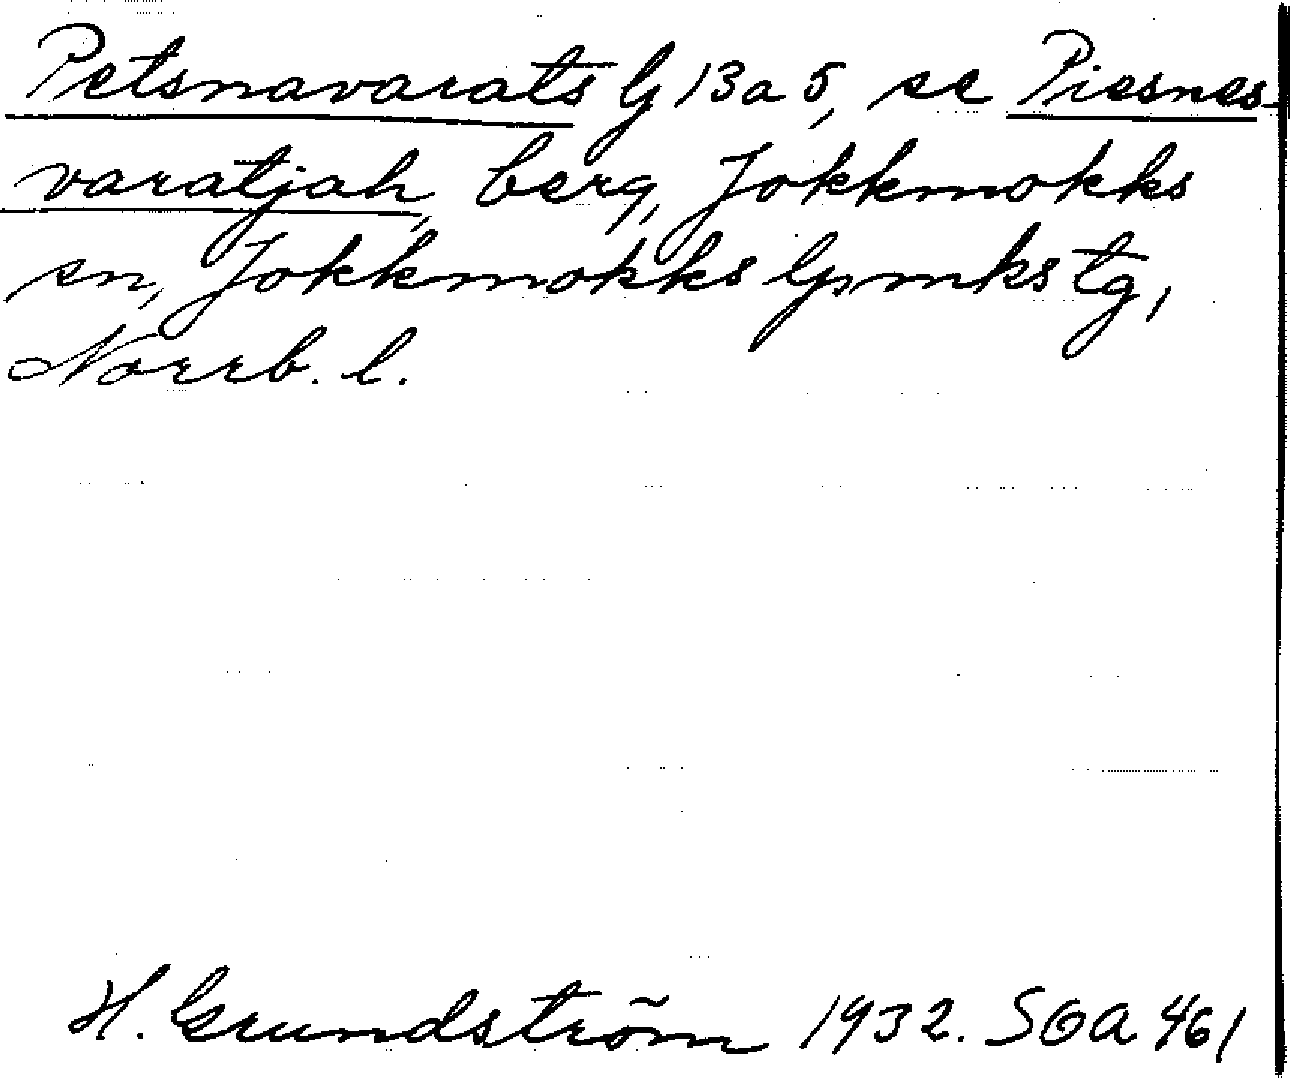 Petsnavarats G 13a5, se Piesnes-
varatjah, berg, Jokkmokks
sn, Jokkmokks lpmks tg,
Norrb. l.
H. Grundström 1932. SOA 461